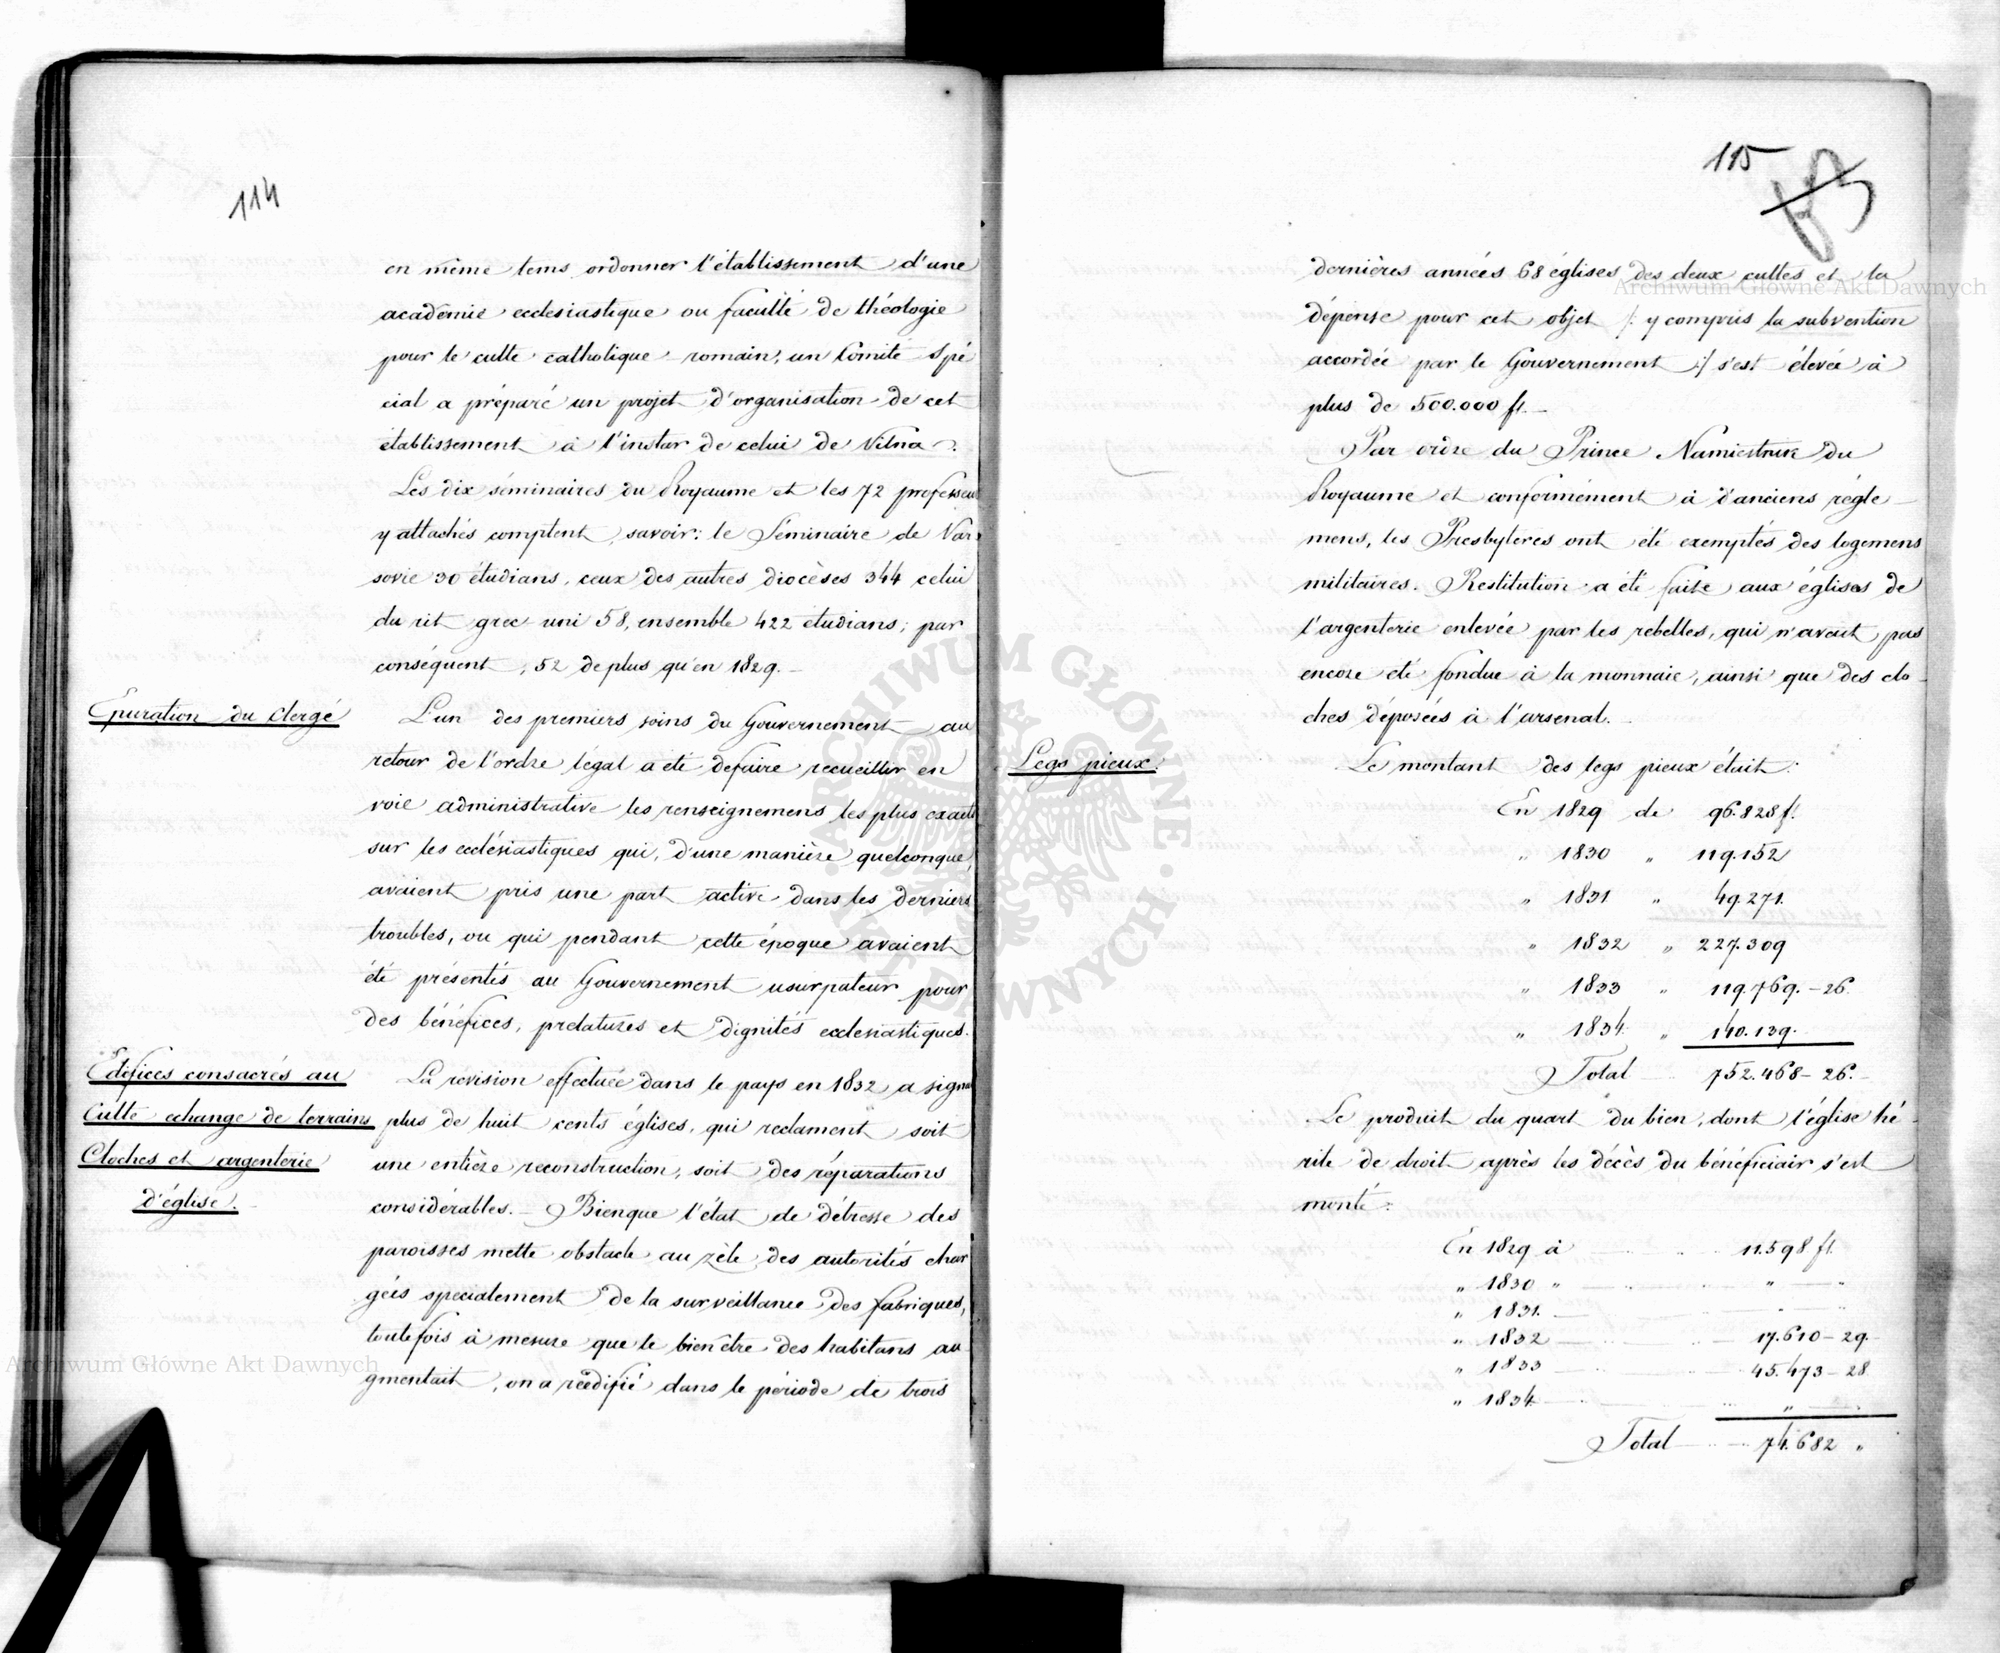 114
en même tems ordonner l'établissement d'une
académie ecclésiastique ou faculté de théologie
pour le culte catholique romain, un Comité Spé
cial a préparé un projet d'organisation de cet
établissement à l'instar de celui de Vilna.
Les dix séminaires du Royaume et les 72 professeu
y attachés comptent, savoir: le Séminaire de Var
sovie 30 étudians, ceux des autres diocèses 344 celui
du rit grec uni 58, ensemble 422 étudians; par
conséquent, 52 de plus qu'en 1829.
Epuration du clergé
L'un des premiers soins du Gouvernement au
retour de l'ordre légal a été defaire recueillir en
voie administrative les renseignemens les plus exacts
sur les ecclésiastiques qui, d'une manière quelconque,
avaient pris une part active dans les derniers
troubles, ou qui pendant cette époque avaient
été présentés au Gouvernement usurpateur pour
des bénéfices, prélatures et dignités ecclésiastiques.
Edifices consacrés au
Culte echange de terrains
Cloches et argenterie
d'église.
La révision effectuée dans le pays en 1832 a signa
plus de huit cents églises, qui reclament soit
une entière reconstruction, soit des réparations
considérables. - Bienque l'état de détresse des
paroisses mette obstacle au zèle des autorités char
gées specialement de la surveillance des fabriques,
toutefois à mesure que le bien être des habitans au
gmentait, on a réédifié dans le période de trois
115
83
dernières années 68 églises des deux cultes et la
dépense pour cet objet /: y compris la subvention
accordée par le Gouvernement :/ s'est élevée à
plus de 500.000 fl. -
Par ordre du Prince Namiestnik du
Royaume et conformément à d'anciens régle -
mens, les Presbytères ont été exemptés des logemens
militaires. Restitution a été faite aux églises de
l'argenterie enlevée par les rebelles, qui n'avait pas
encore été fondue à la monnaie, ainsi que des clo -
ches déposées à l'arsenal. -
Legs pieux.
Le montant des legs pieux était:
En 1829 de 96.828 fl.
" 1830 " 119.152
" 1831 " 49.271.
" 1832 " 227.309
" 1833 " 119.769. - 26.
" 1834 " 140.139.
Total 752.468 - 26. -
Le produit du quart du bien, dont l'église hé -
rite de droit après les décès du bénéficiair s'est
monté:
En 1829 à 11.598 fl.
" 1830 " " -
" 1831. -
" 1832 17.610 - 29. -
" 1833 45.473 - 28
" 1834 "
Total 74.682 "
Archiwum Główne Akt Dawnych
Archiwum Główne Akt Dawnych
ARCHIWUM GŁÓWNE AKT DAWNYCH